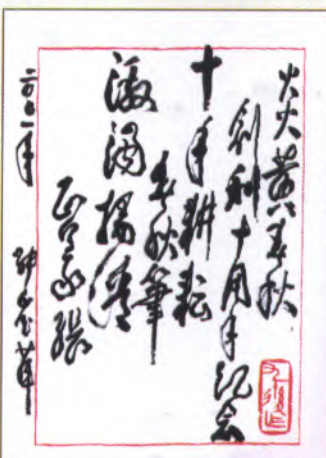 炎黄春秋
創刊十周年纪念
十年耕耘
春秋筆
激濁揚清
正氣張
二〇〇一年